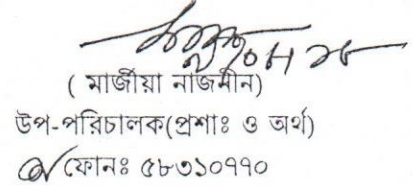 ( মার্জীয়া নাজমীন)
উপ-পরিচালক(প্রশাঃ ও অর্থ)
ফোনঃ ৫৮৩১০৭৭০